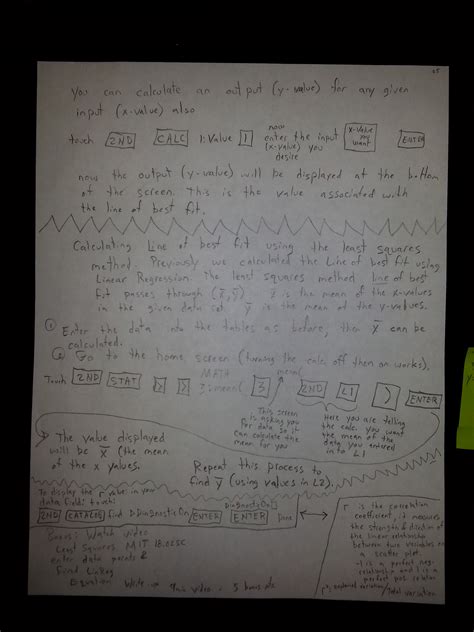 you can calculate an output (y-value) for any given
input (x-value) also
touch 2ND CALC 1:Value 1 now enter the input (x-value) you desire x-value you want ENTER
now the output (y-value) will be displayed at the bottom
of the screen. This is the value associated with
the line of best fit.
Calculating Line of best fit using the least squares
method. Previously we calculated the Line of best fit using
Linear Regression. The least squares method line of best
fit passes through (x̄,ȳ). x̄ is the mean of the x-values
in the given data set ȳ is the mean of the y-values.
① Enter the data into the tables as before, then ȳ can be
calculated.
② Go to the home screen (turning the calc. off then on works).
MATH mean(
Touch 2ND STAT > > 3:mean( 3 2ND L1 ) ENTER
This screen
is asking you
for data so it
can calculate the
mean for you
Here you are telling
the calc. you want
the mean of the
data you entered
into L1
The value displayed
will be x̄ (the mean
of the x values.
Repeat this process to
find ȳ (using values in L2).
To display the r value in your
data field: touch:
DiagnosticOn
2ND CATALOG find DiagnosticOn ENTER ENTER Done
Bonus: Watch video
Least Squares MIT 18.02SC
enter data points &
Find Linreg
Equation! Write 9min video = 5 bonus pts
r is the correlation
coefficient, it measures
the strength & direction of
the linear relationship
between two variables on
a scatter plot
-1 is a perfect neg.
relationship and 1 is a
perfect pos. relation
explained variation/total variation